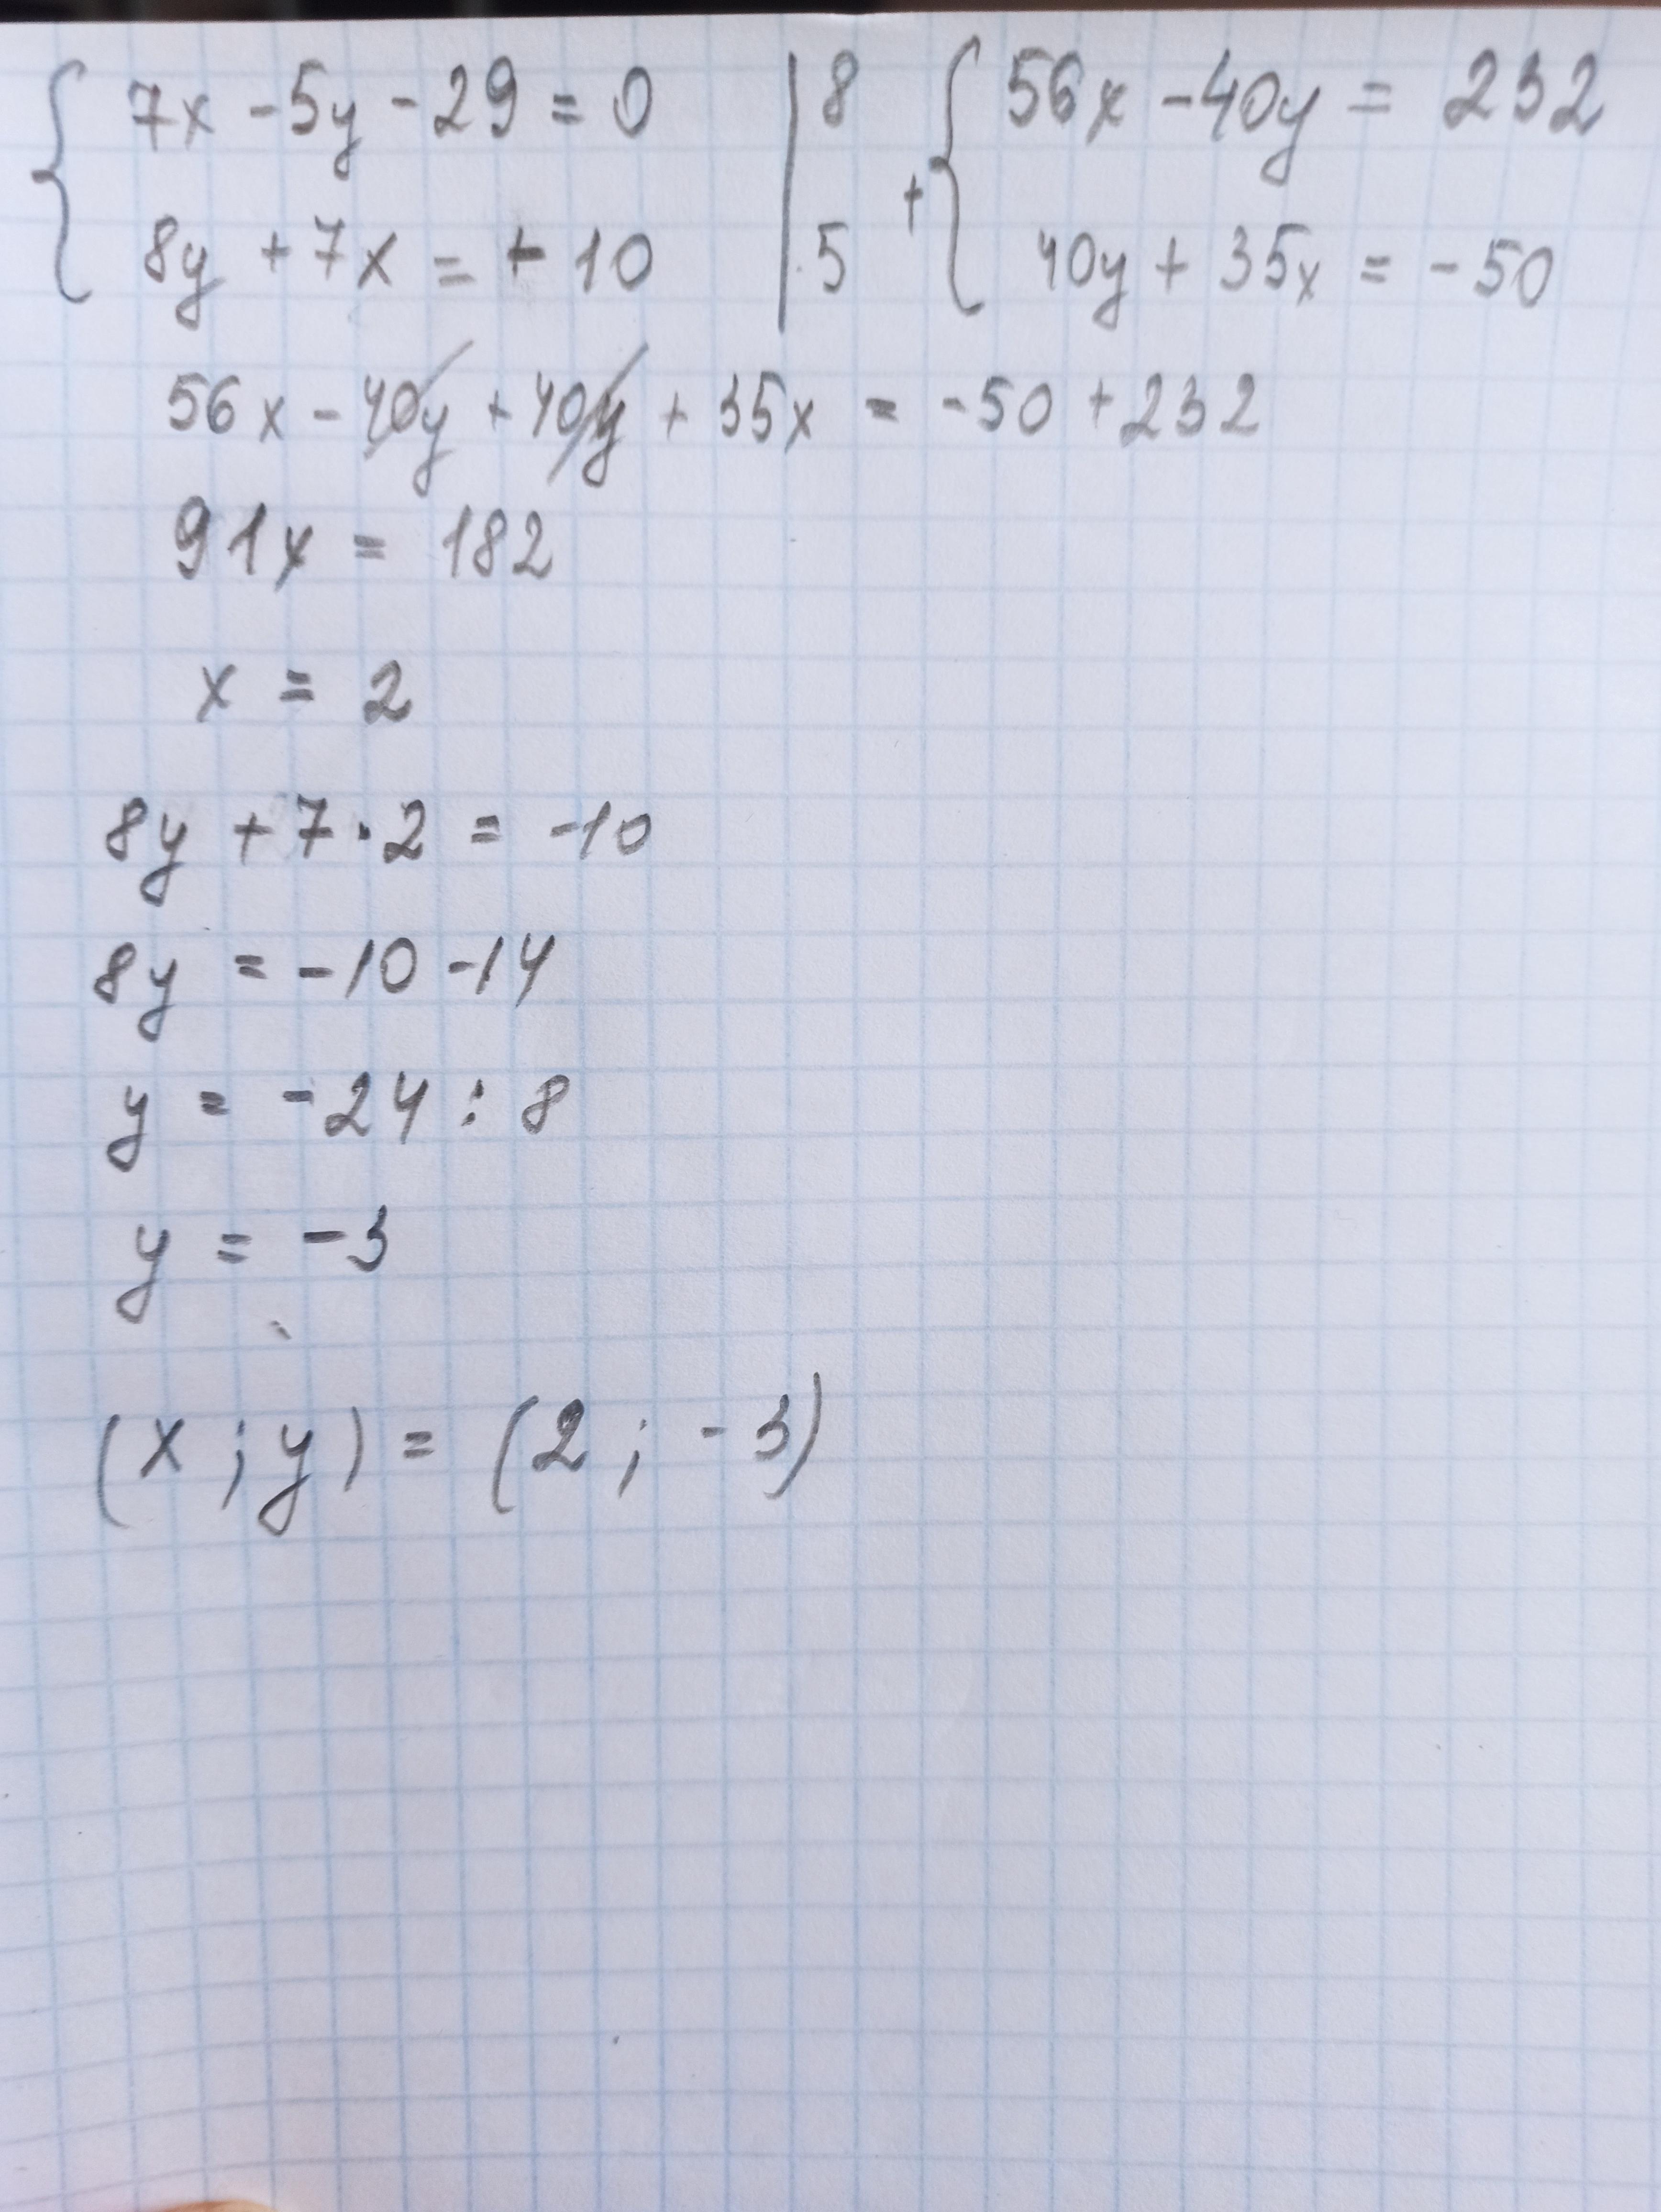 7x - 5y - 29 = 0 | 8 { 56x - 40y = 232
8y + 7x = - 10 | 5 + { 40y + 35x = -50
56x - 40y + 40y + 35x = -50 + 232
91x = 182
x = 2
8y + 7 · 2 = -10
8y = -10 - 14
y = -24 : 8
y = -3
(x ; y) = (2 ; -3)